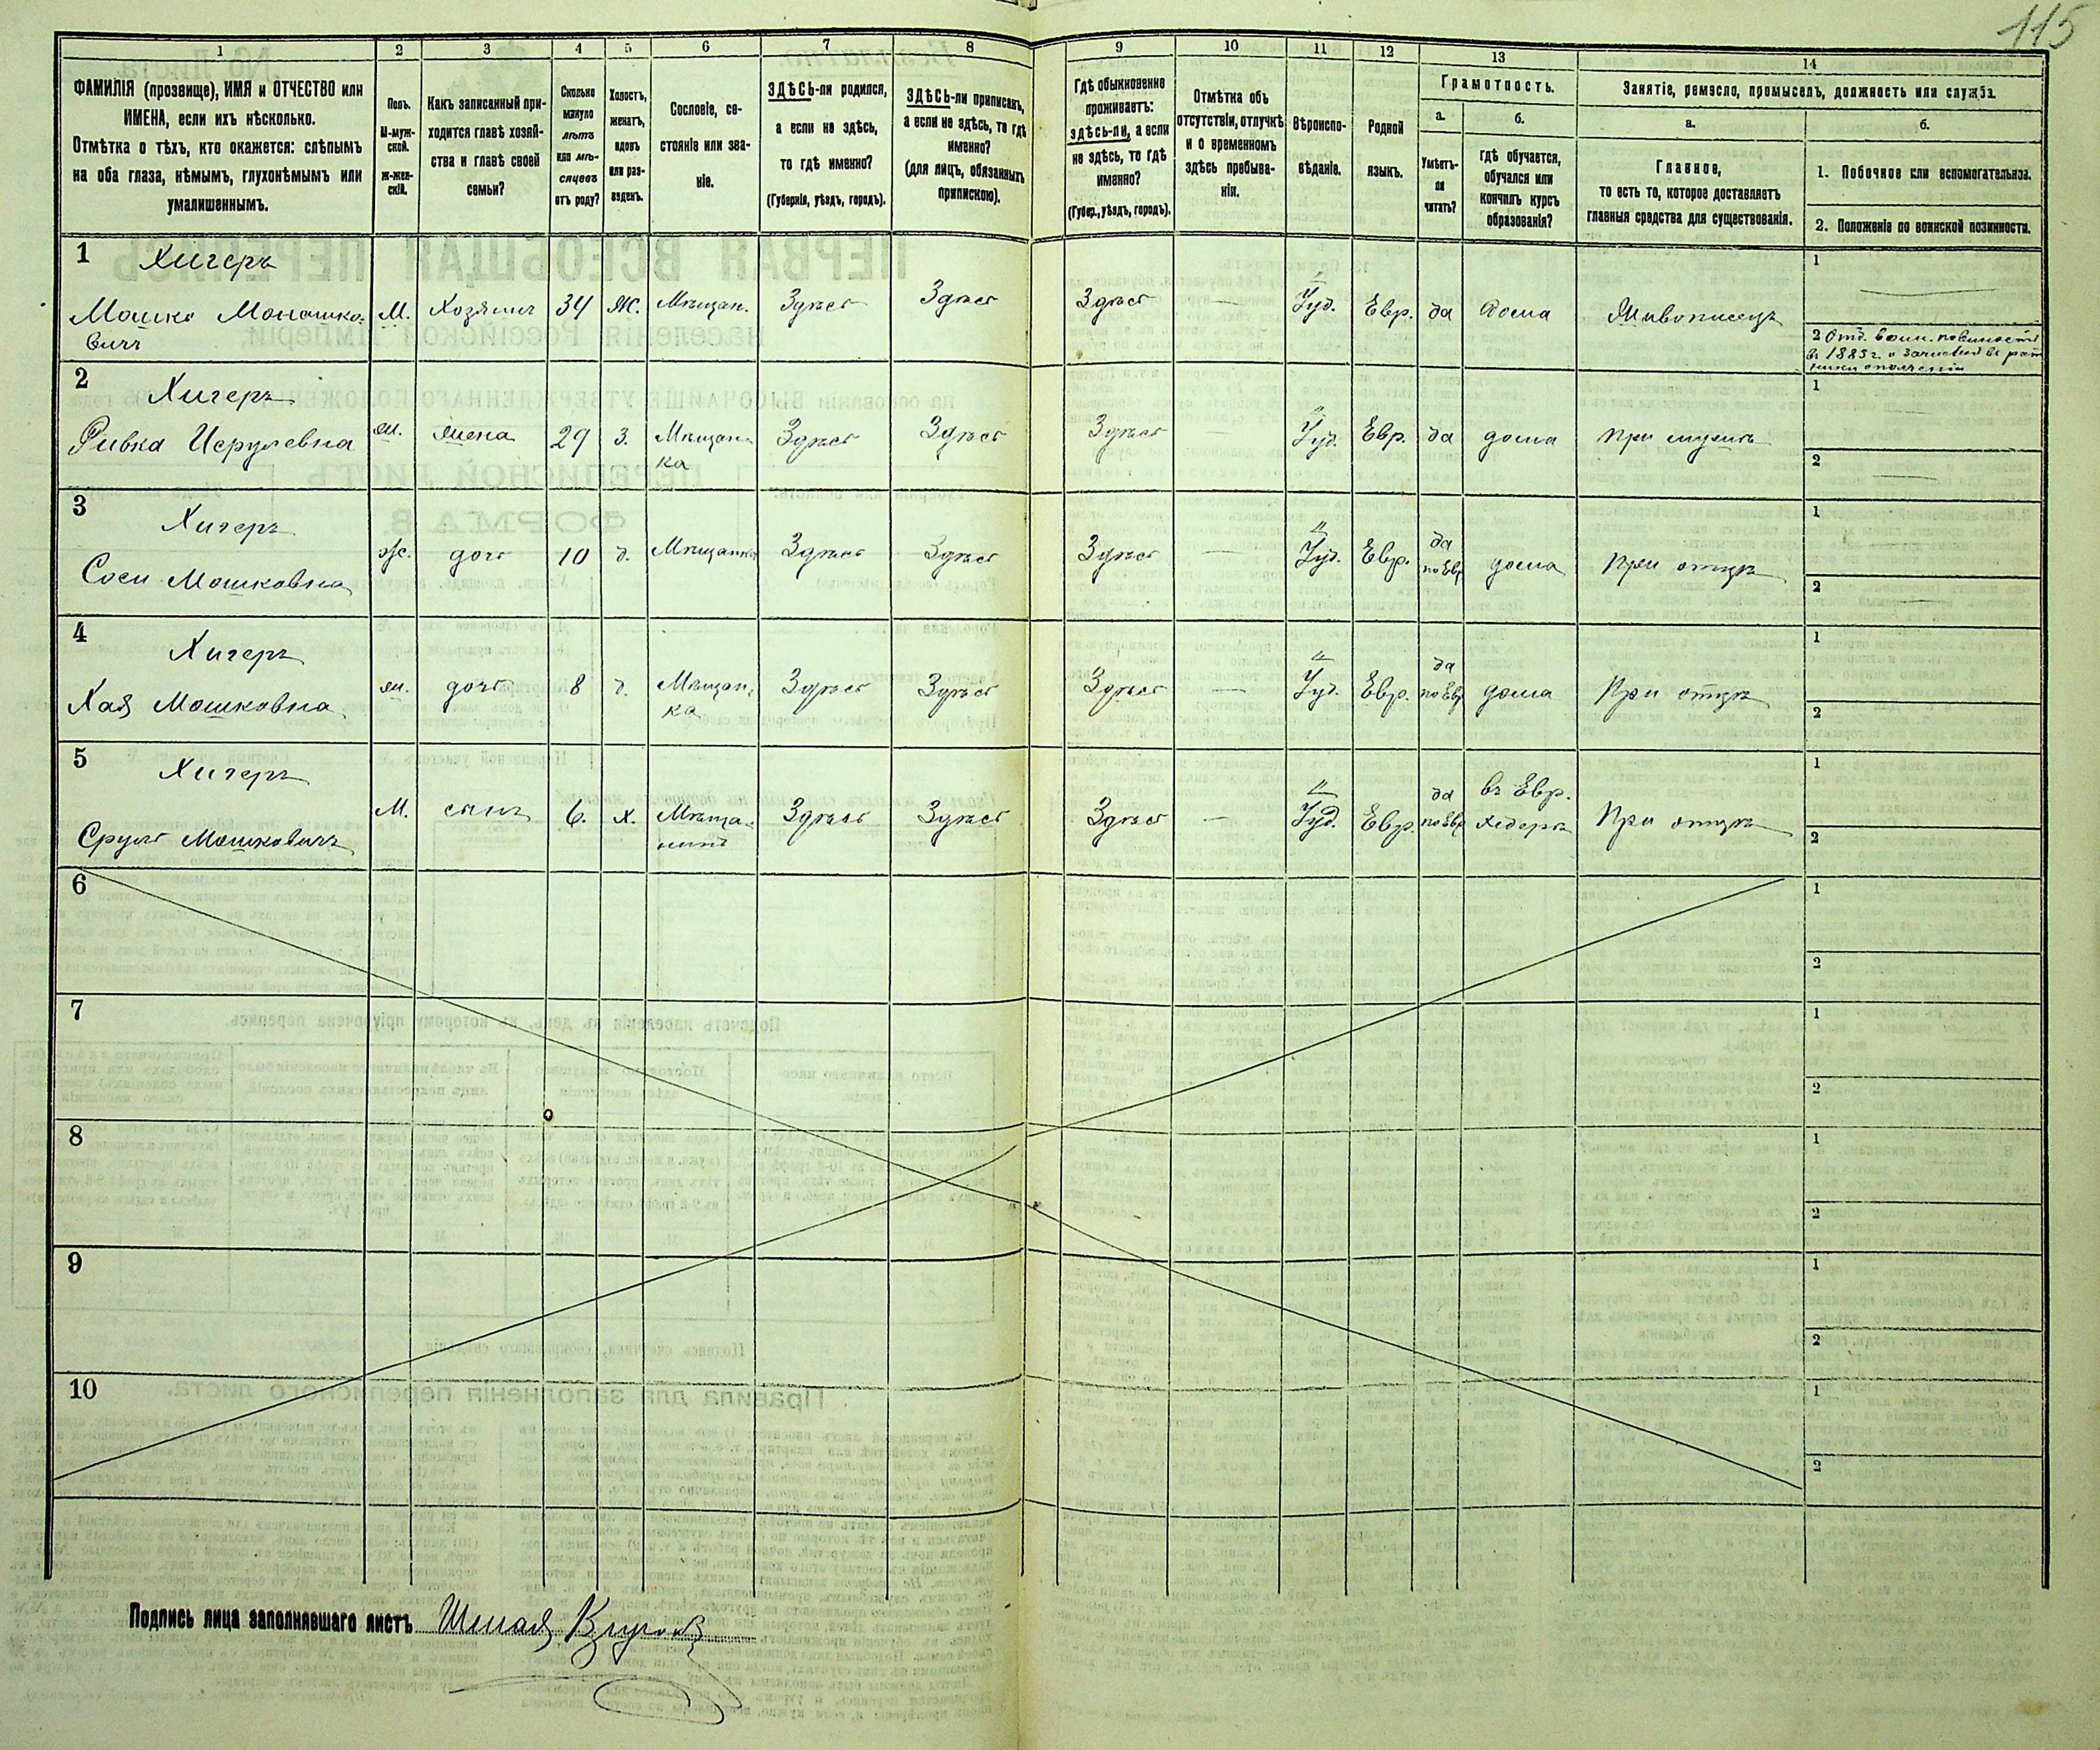 115
1 2 3 4 5 6 7 8 9 10 11 12 13 14
ФАМИЛІЯ (прозвище), ИМЯ и ОТЧЕСТВО или
ИМЕНА, если ихъ нѣсколько.
Отмѣтка о тѣхъ, кто окажется: слѣпымъ
на оба глаза, нѣмымъ, глухонѣмымъ или
умалишеннымъ.
Полъ.
М-муж-
ской.
Ж-жен-
скій.
Какъ записанный при-
ходится главѣ хозяй-
ства и главѣ своей
семьи?
Сколько
минуло
лѣтъ
или мѣ-
сяцевъ
отъ роду?
Холостъ,
женатъ,
вдовъ
или раз-
веденъ.
Сословіе, со-
стояніе или зва-
ніе.
ЗДѢСЬ-ли родился,
а если не здѣсь,
то гдѣ именно?
(Губернія, уѣздъ, городъ).
ЗДѢСЬ-ли приписанъ,
а если не здѣсь, то гдѣ
именно?
(для лицъ, обязанныхъ
припискою).
Гдѣ обыкновенно
проживаетъ:
здѣсь-ли, а если
не здѣсь, то гдѣ
именно?
(Губер., уѣздъ, городъ).
Отмѣтка объ
отсутствіи, отлучкѣ
и о временномъ
здѣсь пребыва-
ніи.
Вѣроиспо-
вѣданіе.
Родной
языкъ.
Грамотность.
а.
Умѣетъ-
ли
читать?
б.
гдѣ обучается,
обучался или
кончилъ курсъ
образованія?
Занятіе, ремесло, промыселъ, должность или служба.
а.
Главное,
то есть то, которое доставляетъ
главныя средства для существованія.
б.
1. Побочное или вспомогательное.
2. Положеніе по воинской повинности.
1 Хигеръ
Мошко Монашко-
вичъ
М. Хозяинъ 34 Ж. Мѣщан. Здѣсь Здѣсь Здѣсь — Іуд. Евр. да Дома Живописецъ
1
2 Отб. воин. повинность
въ 1883 г. и зачислен въ рат
ники ополченія
2 Хигеръ
Ривка Исрулевна
ж. жена 29 З. Мѣщан- Здѣсь Здѣсь Здѣсь — Іуд. Евр. да дома при мужѣ
ка
1
2
3 Хигеръ
Соси Мошковна
ж. дочь 10 д. Мѣщанка Здѣсь Здѣсь Здѣсь — Іуд. Евр. да по Евр дома При отцѣ
1
2
4 Хигеръ
Хая Мошковна
ж. дочь 8 д. Мѣщан- Здѣсь Здѣсь Здѣсь — Іуд. Евр. да по Евр дома При отцѣ
ка
1
2
5 Хигеръ
Сруль Мошковичъ
М. сынъ 6. х. Мѣща- Здѣсь Здѣсь Здѣсь — Іуд. Евр. да по Евр въ Евр. хедерѣ При отцѣ
нинъ
1
2
6
1
2
7
1
2
8
1
2
9
1
2
10
1
2
Подпись лица заполнявшаго листъ Шмая